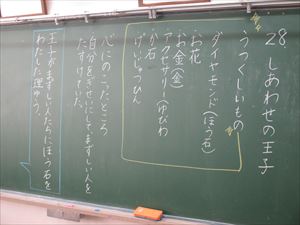 28. しあわせの王子
うつくしいもの
ダイヤモンド(ほうせき)
お花
お金(金)
アクセサリー(ゆびわ)
か石
げいじゅつひん
心にのこったところ
自分をぎせいにしてまずしい人を
たすけていた。
王子がまずしい人たちにほう石を
わたした理ゆう。